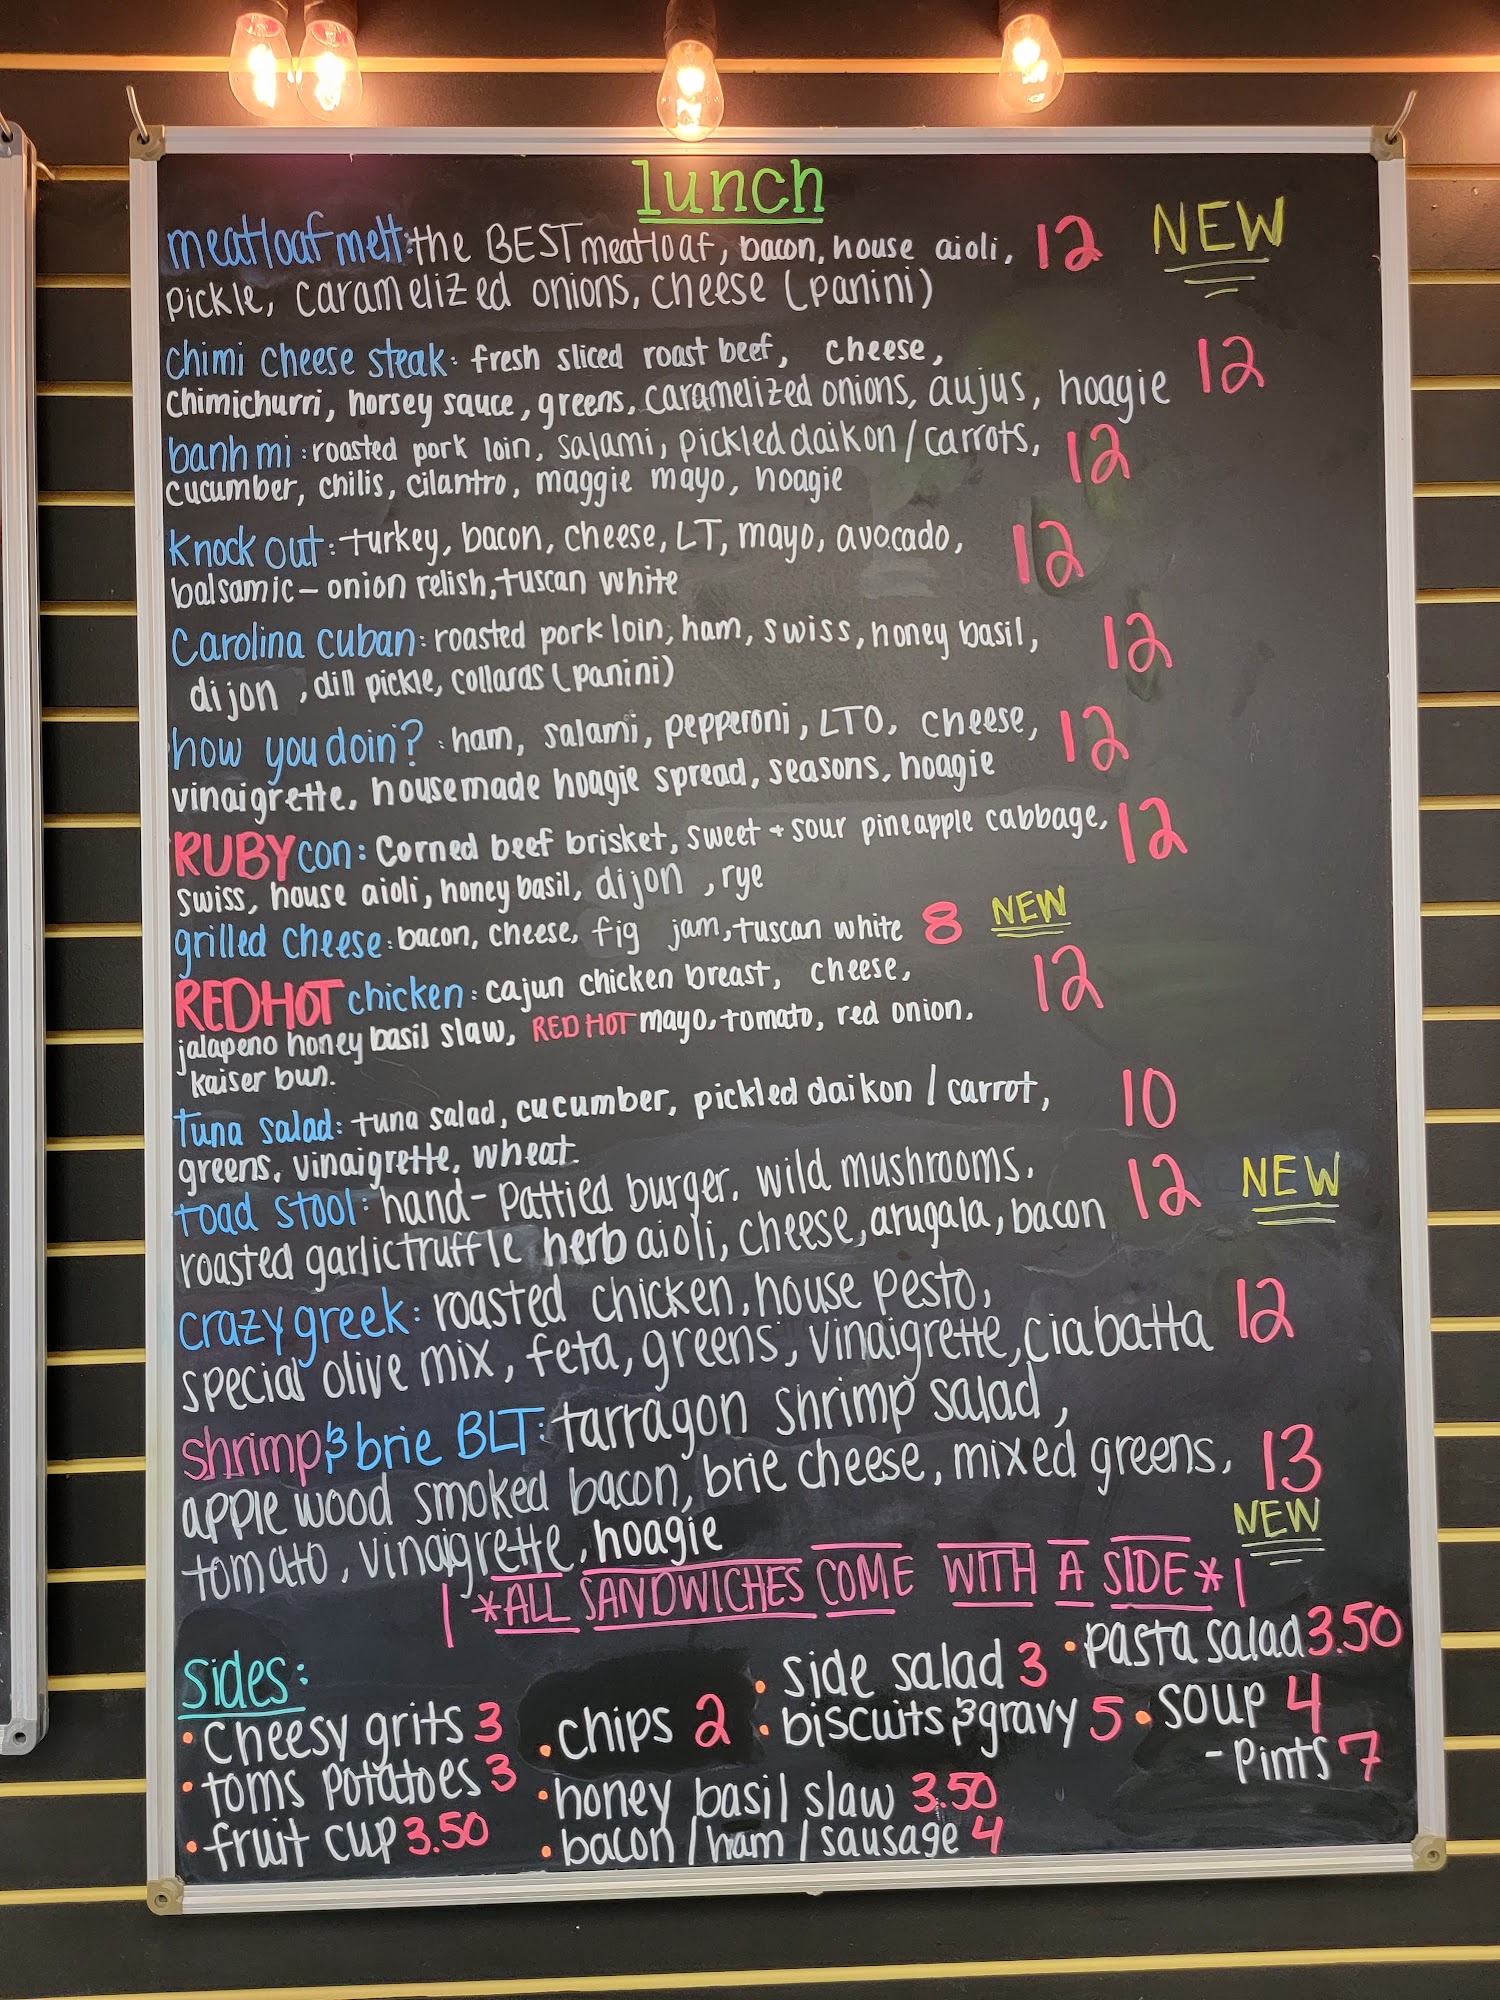 lunch
meatloaf melt: the BEST meatloaf, bacon, house aioli, 12 NEW
pickle, caramelized onions, cheese (panini)
chimi cheese steak: fresh sliced roast beef, cheese,
chimichurri, horsey sauce, greens, caramelized onions, aujus, hoagie 12
banh mi: roasted pork loin, salami, pickled daikon / carrots, 12
cucumber, chilis, cilantro, maggie mayo, hoagie
knock out: turkey, bacon, cheese, LT, mayo, avocado, 12
balsamic - onion relish, tuscan white
Carolina cuban: roasted pork loin, ham, swiss, honey basil, 12
dijon, dill pickle, collards (panini)
how you doin? : ham, salami, pepperoni, LTO, cheese, 12
vinaigrette, housemade hoagie spread, seasons, hoagie
RUBY con: Corned beef brisket, sweet + sour pineapple cabbage, 12
swiss, house aioli, honey basil, dijon, rye
grilled cheese: bacon, cheese, fig jam, tuscan white 8 NEW
RED HOT chicken: cajun chicken breast, cheese, 12
jalapeno honey basil slaw, RED HOT mayo, tomato, red onion,
kaiser bun.
tuna salad: tuna salad, cucumber, pickled daikon / carrot, 10
greens, vinaigrette, wheat
toad stool: hand-pattied burger, wild mushrooms, 12 NEW
roasted garlic truffle herb aioli, cheese, arugala, bacon
crazy greek: roasted chicken, house pesto,
special olive mix, feta, greens, vinaigrette, ciabatta 12
shrimp & brie BLT: tarragon shrimp salad,
apple wood smoked bacon, brie cheese, mixed greens, 13
tomato, vinaigrette, hoagie NEW
*ALL SANDWICHES COME WITH A SIDE*
sides:
• cheesy grits 3
• toms potatoes 3
• fruit cup 3.50
• chips 2
• honey basil slaw 3.50
• bacon / ham / sausage 4
• side salad 3
• biscuits & gravy 5
• pasta salad 3.50
• soup 4
- pints 7